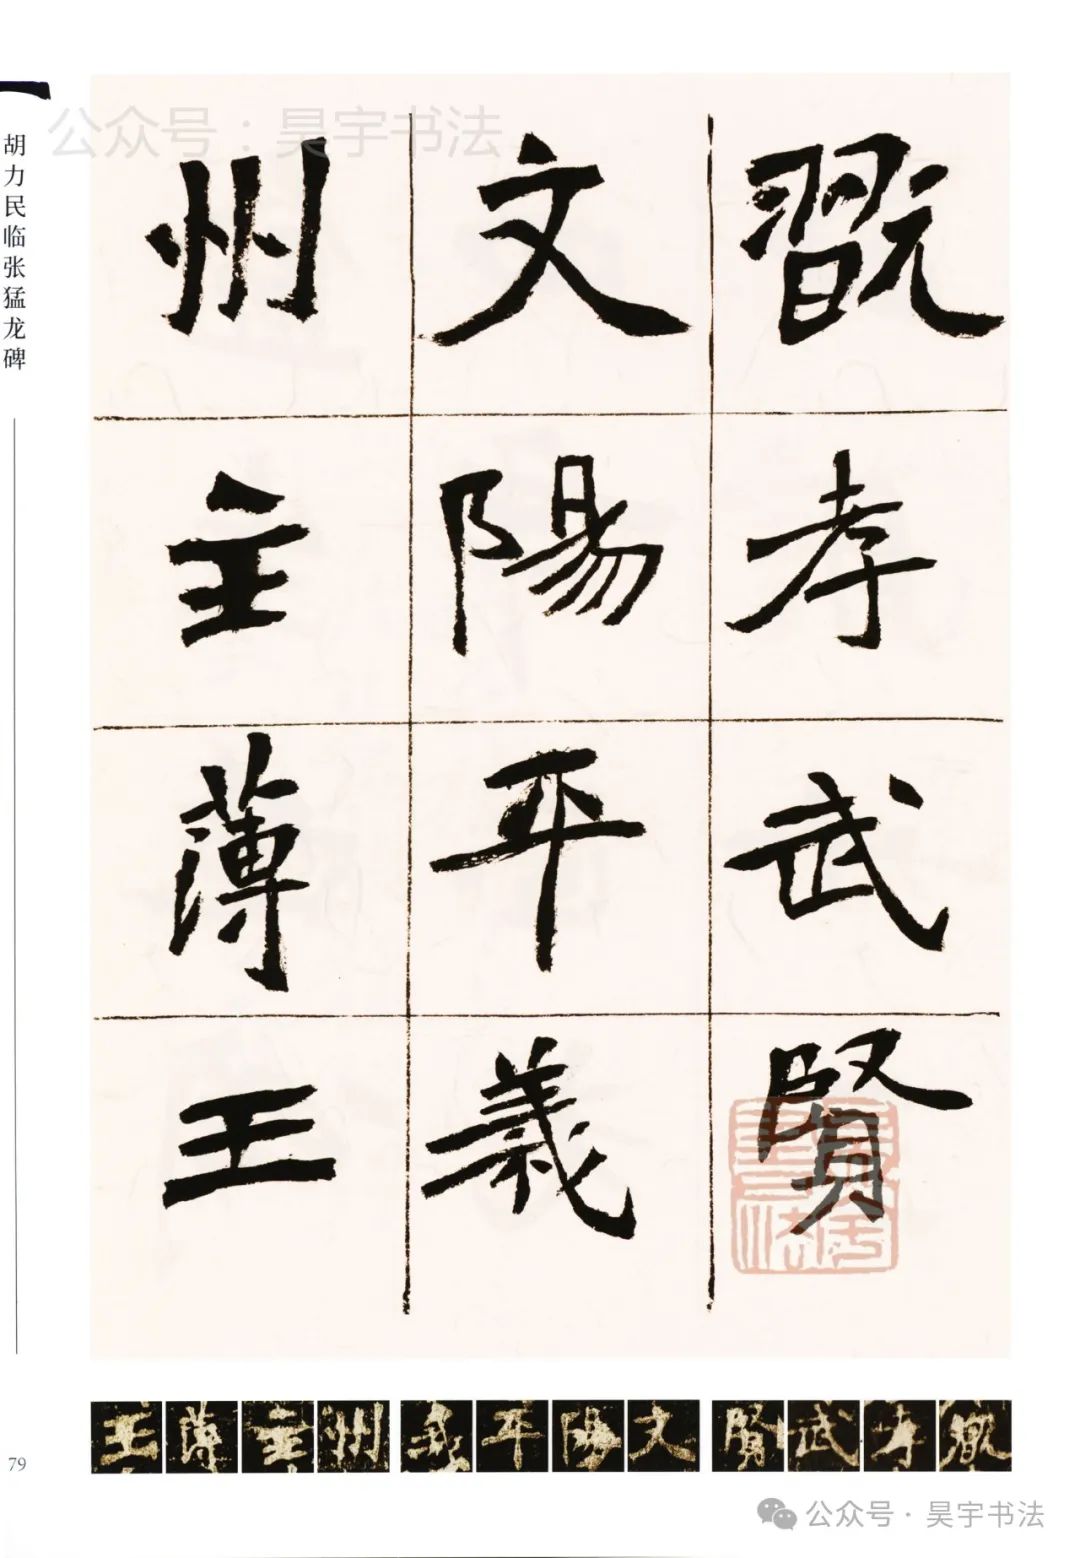 公众号：昊宇书法
胡力民临张猛龙碑
翫孝武賢
文陽平義
州主薄王
王薄主州義平陽文賢武孝翫
79
公众号·昊宇书法